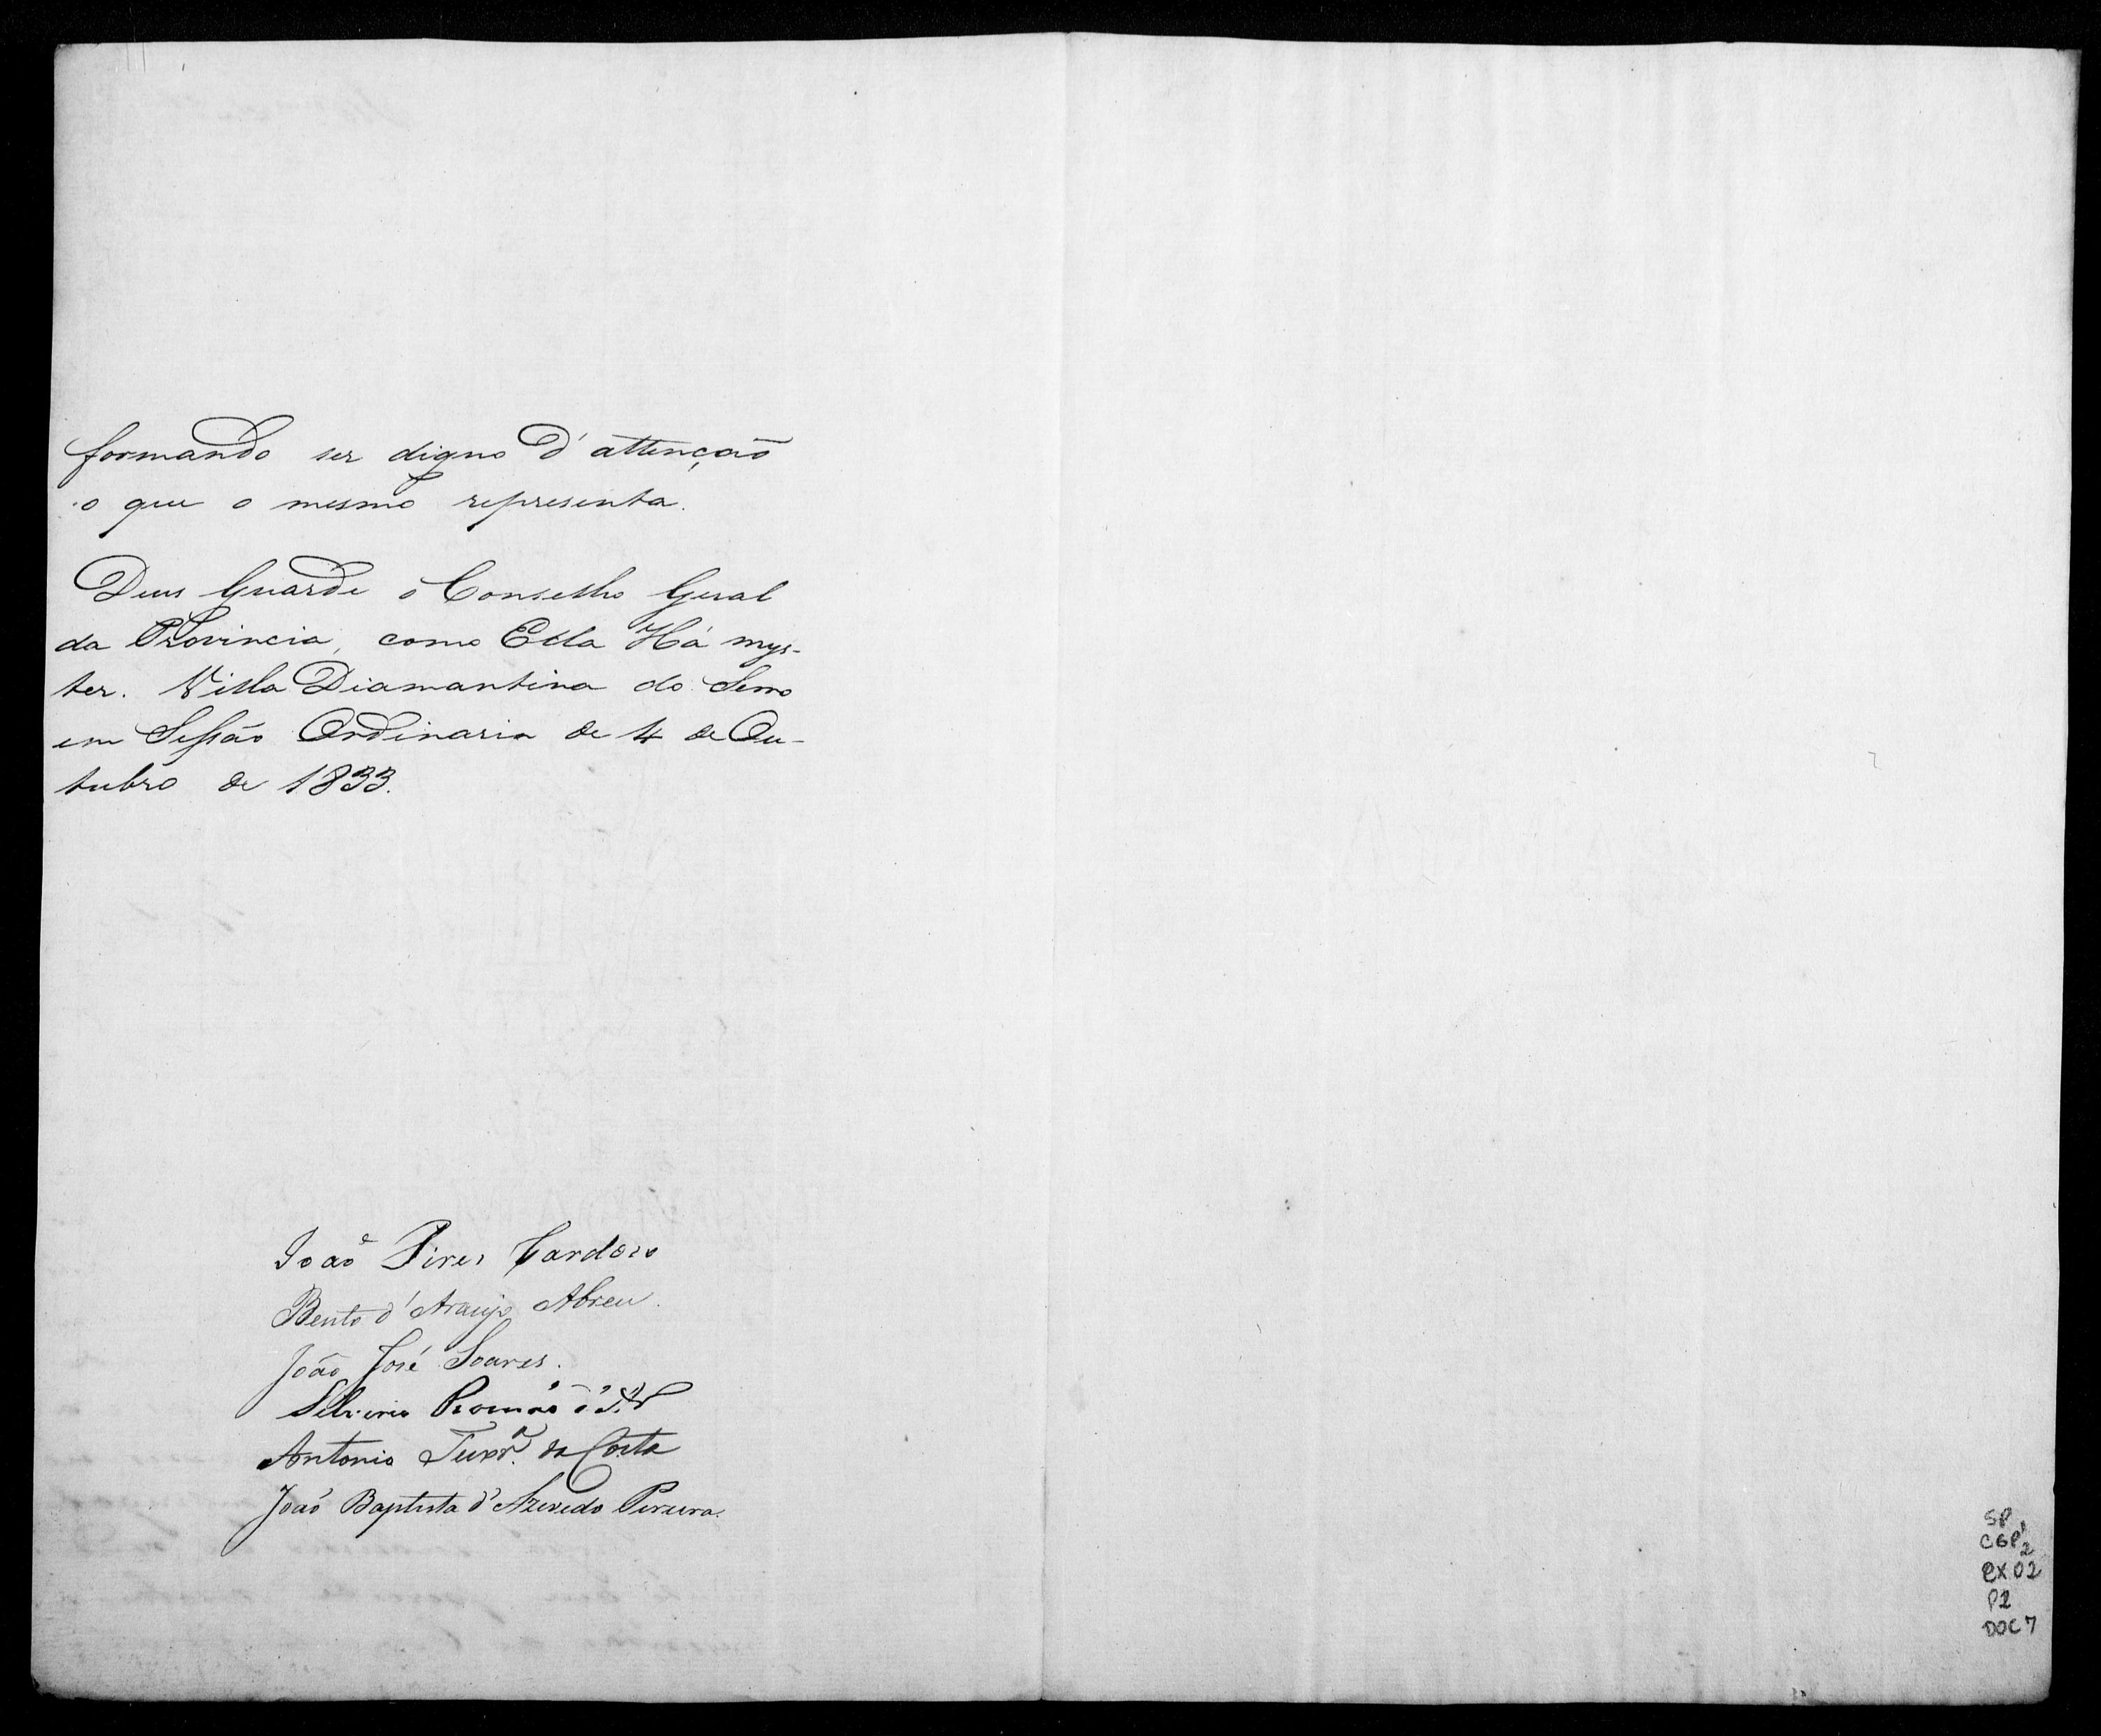 formando ser digno d'attenção
o que o mesmo representa.
Deus Guarde o Conselho Geral
da Provincia, como Ella Há mys-
ter. Villa Diamantina do Serro
em Sessão Ordinaria de 4 de Ou-
tubro de 1833.
João Pires Cardoso
Bento d'Araujo Abreu.
João José Soares.
Silverio
Antonio Teixr.ª da Costa
João Baptista d'Azevedo Pereira.
SP
CGP 2
CX 02
P2
DOC 7